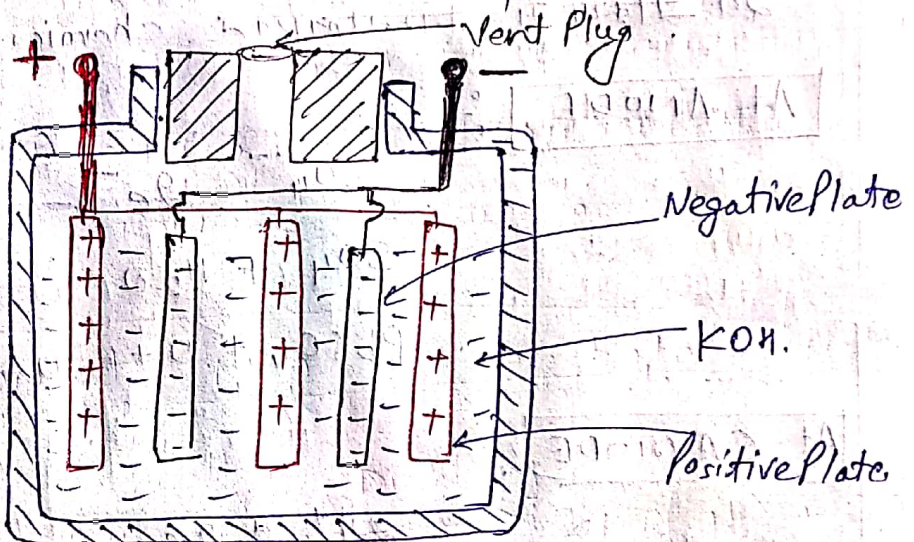 Vent Plug.
+
−
Negative Plate
KOH.
Positive Plate